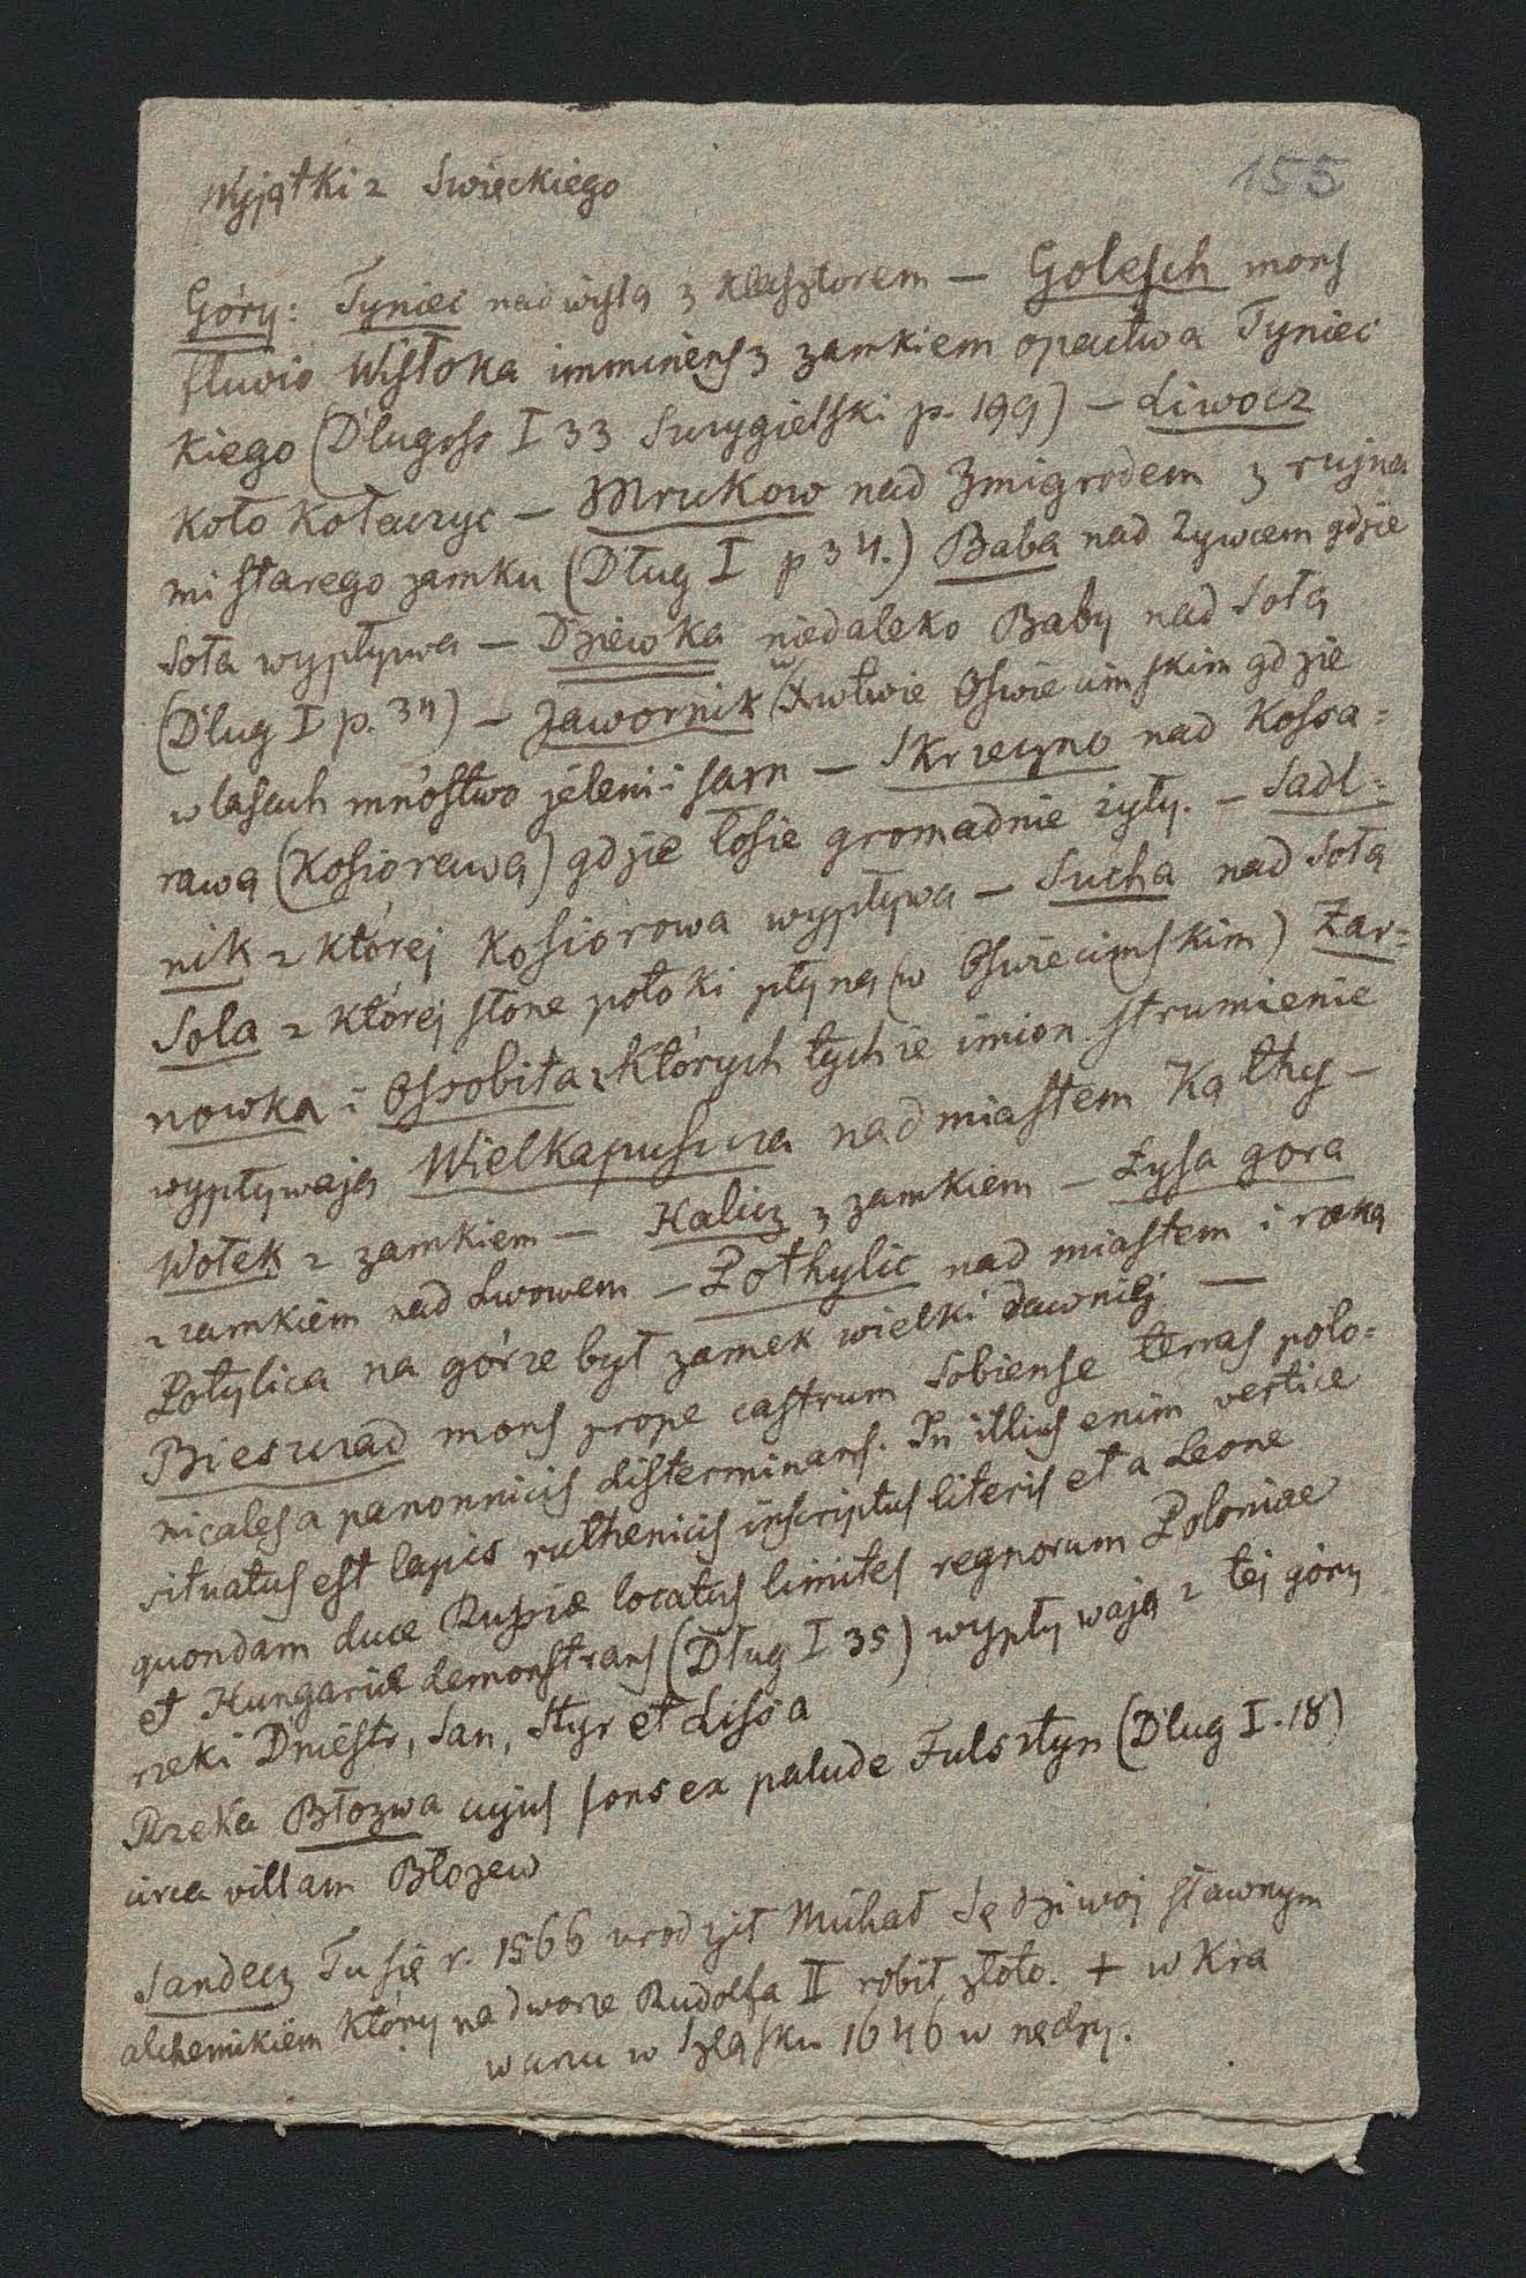 Wyjątki z Swięckiego
155
Góry: Tyniec nad wisłą z klasztorem — Golesch mons
fluvio Wisłoka imminens z zamkiem opactwa Tyniec
kiego (Długoss I 33 Szczygielski p. 199) — Liwocz
koło Kołaczyc — Mrukow nad Żmigrodem z rujna
mi starego zamku (Dług I p 34.) Baba nad Żywcem gdzie
Soła wypływa — Dziewka niedaleko Baby nad Sołą
(Dług I p. 34) — Jawornik w Xwtwie Oswiecimskim gdzie
w lasach mnóstwo jeleni i sarn — Skrzeczno nad Kossa=
rawą (Kosiorawą) gdzie łosie gromadnie żyły. — Sadl=
nik z której Kosiorowa wypływa — Sucha nad Sołą
Sola z której słone potoki płyną (w Oswiecimskim) Żar=
nowka i Ossobita z których tychże imion strumienie
wypływają Wielkapuszcza nad miastem Kąthy —
Wołek z zamkiem — Halicz z zamkiem — Łysa gora
z zamkiem nad Lwowem — Pothylic nad miastem i rzeką
Potylica na górze był zamek wielki dawniej —
Biesczad mons prope castrum Sobiense terras polo=
nicales a panonnicis disterminans. In illius enim vertice
situatus est lapis ruthenicis inscriptus literis et a Leone
quondam duce Russie locatus limites regnorum Poloniae
et Hungariæ demonstrans (Dług I 35) wypływają z tej góry
rzeki Dniestr, San, Styr et Lissa
Rzeka Błozwa cujus fons ex palude Fulsztyn (Dlug I. 18)
circa villam Błozew
Sandecz Tu się r. 1566 urodził Michał Sędziwoj sławnym
alchemikiem który na dworze Rudolfa II robił złoto. + w Kra
warzu w Szląsku 1646 w nędzy.